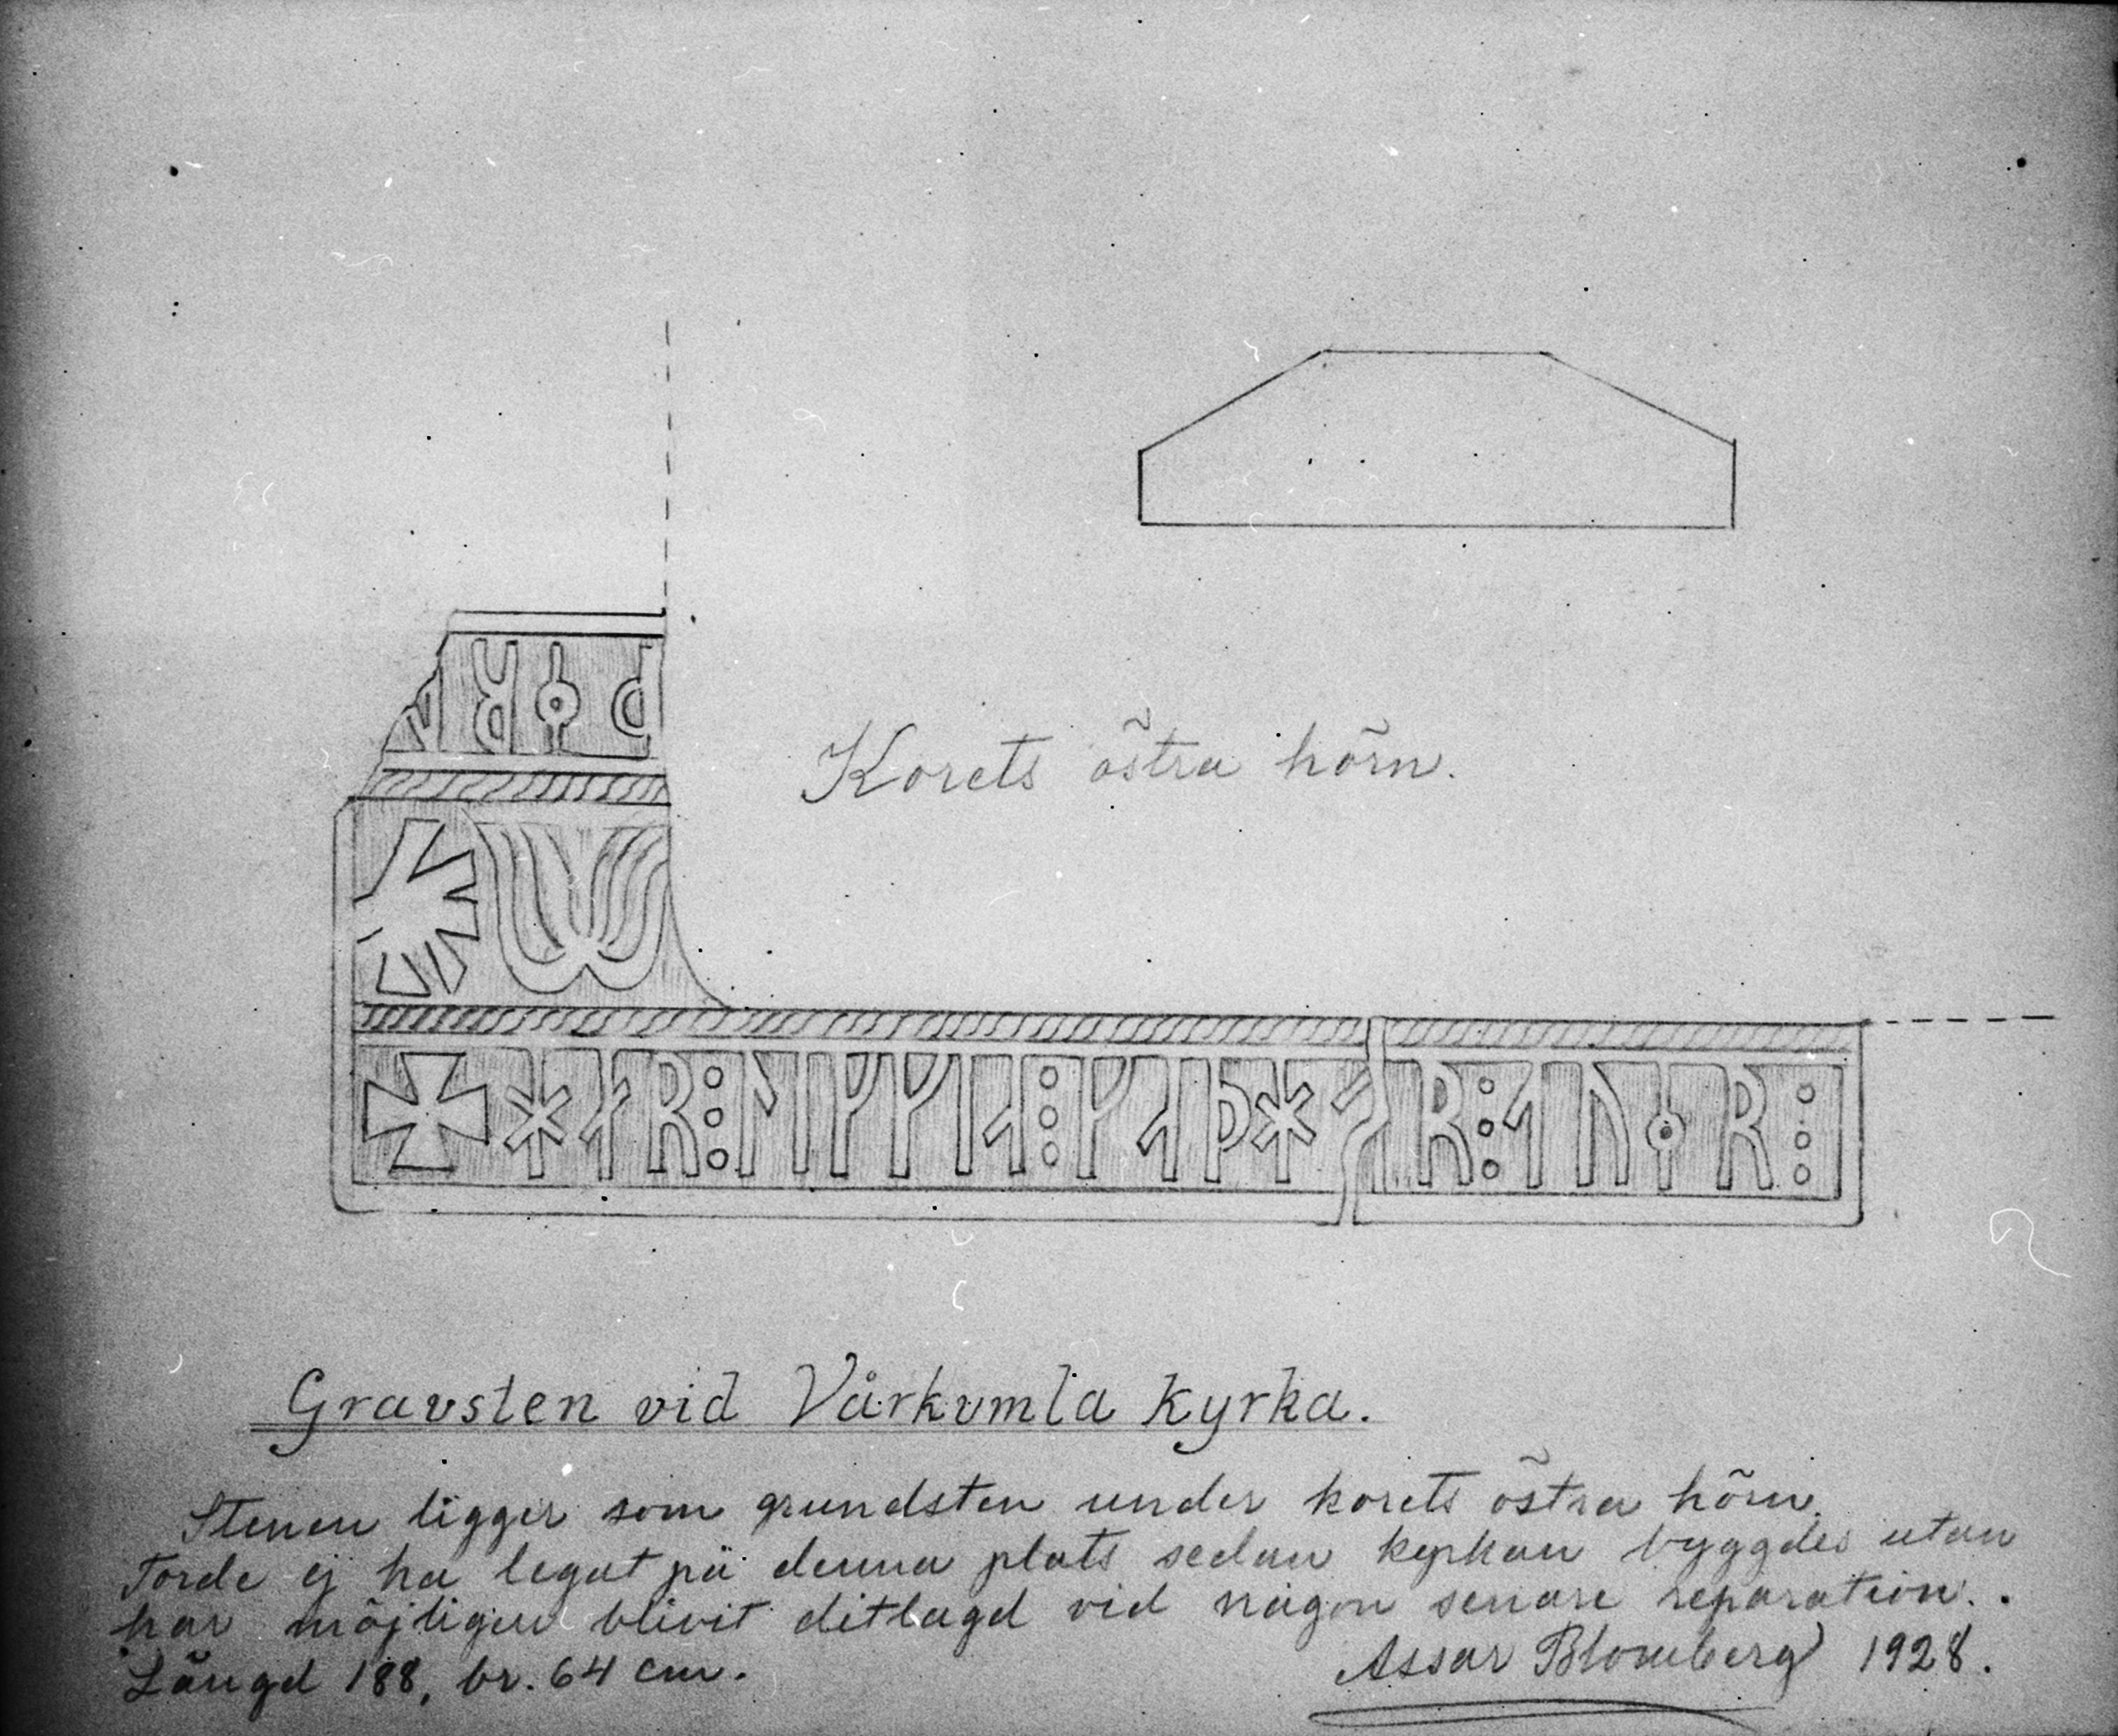 ᛂᚱ
Korets östra hörn.
✠ᚼᛅᚱ⁝ᛚᛁᚴᚴᛁᛆ⁝ᚴᛆᚦᚼᛅᚱ⁝ᛐᚢᛂᚱ⁝
Gravsten vid Vårkumla kyrka.
Stenen ligger som grundsten under korets östra hörn.
Torde ej ha legat på denna plats sedan kyrkan byggdes utan
har möjligen blivit ditlagd vid någon senare reparation.
Längd 188, br. 64 cm.
Assar Blomberg 1928.